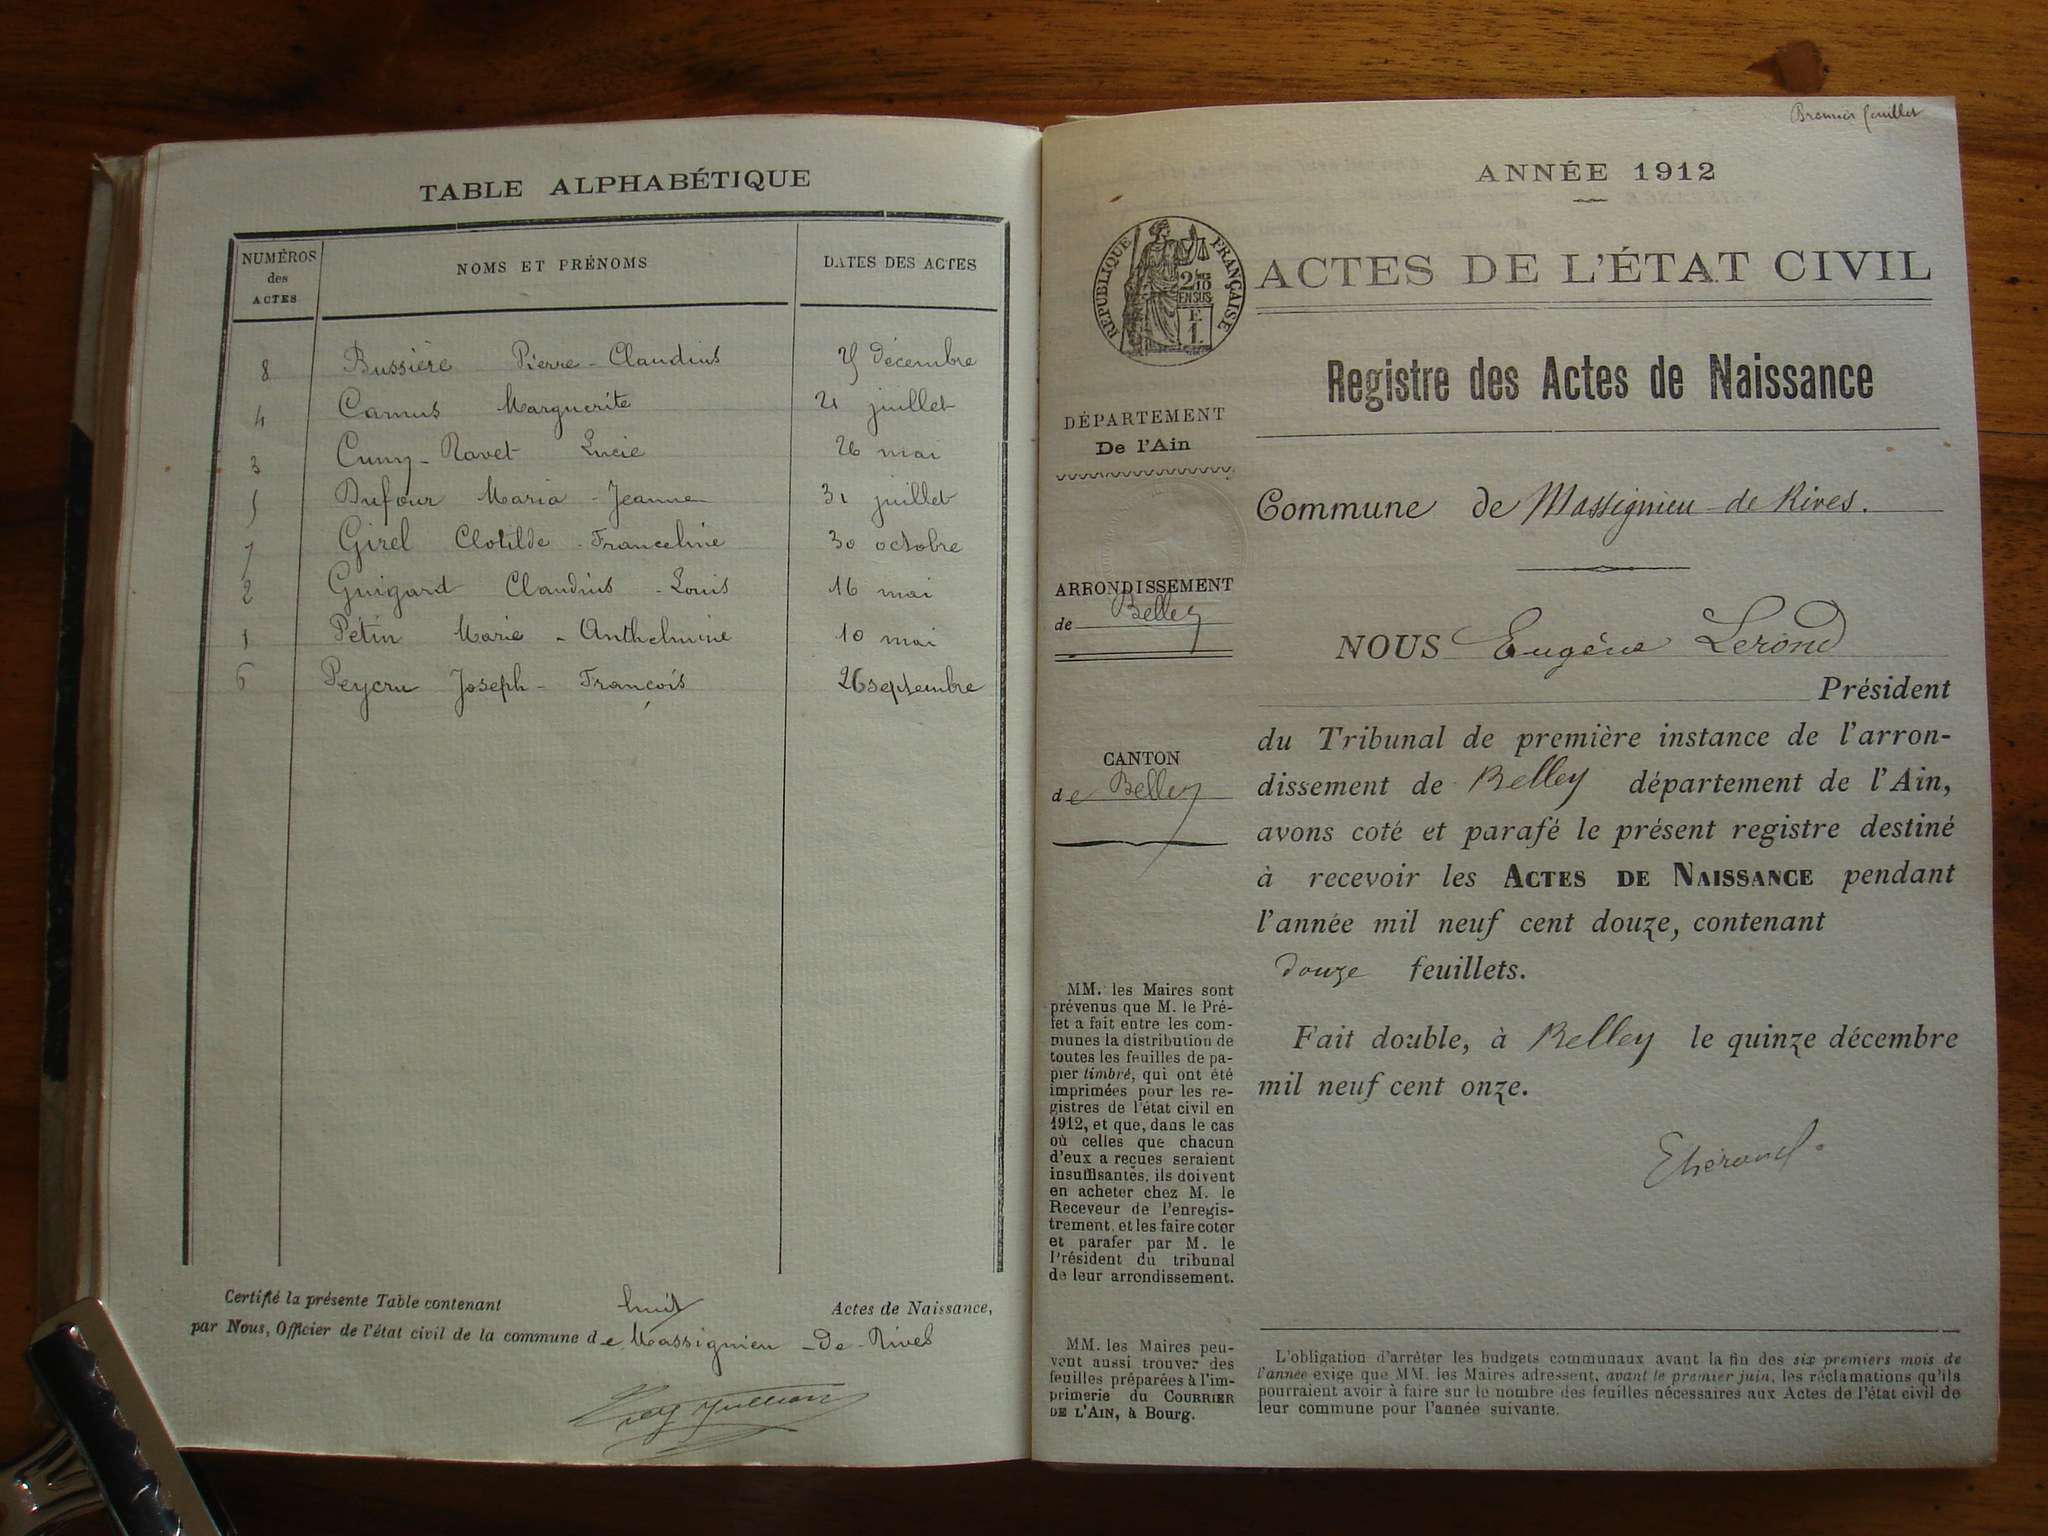 TABLE ALPHABÉTIQUE
NUMÉROS des ACTES NOMS ET PRÉNOMS DATES DES ACTES
8 Bussière Pierre-Claudius 25 décembre
4 Camus Marguerite 21 juillet
3 Cuny-Ravet Lucie 26 mai
5 Dufour Maria-Jeanne 31 juillet
7 Girel Clotilde-Franceline 30 octobre
2 Guigard Claudius-Louis 16 mai
1 Petin Marie-Anthelmine 10 mai
6 Peycru Joseph-François 26 septembre
Certifié la présente Table contenant huit Actes de Naissance,
par Nous, Officier de l'état civil de la commune de Massignieu-De-Rives
Premier feuillet
ANNÉE 1912
RÉPUBLIQUE FRANÇAISE
2/10
EN SUS
F.
1.
ACTES DE L'ÉTAT CIVIL
Registre des Actes de Naissance
DÉPARTEMENT
De l'Ain
ARRONDISSEMENT
de Belley
CANTON
de Belley
MM. les Maires sont
prévenus que M. le Pré-
fet a fait entre les com-
munes la distribution de
toutes les feuilles de pa-
pier timbré, qui ont été
imprimées pour les re-
gistres de l'état civil en
1912, et que, dans le cas
où celles que chacun
d'eux a reçues seraient
insuffisantes, ils doivent
en acheter chez M. le
Receveur de l'enregis-
trement, et les faire coter
et parafer par M. le
Président du tribunal
de leur arrondissement.
MM. les Maires peu-
vent aussi trouver des
feuilles préparées à l'im-
primerie du COURRIER
DE L'AIN, à Bourg.
Commune de Massignieu-de Rives.
NOUS Eugène Lerond
Président
du Tribunal de première instance de l'arron-
dissement de Belley département de l'Ain,
avons coté et parafé le présent registre destiné
à recevoir les ACTES DE NAISSANCE pendant
l'année mil neuf cent douze, contenant
douze feuillets.
Fait double, à Belley le quinze décembre
mil neuf cent onze.
ELerond.
L'obligation d'arrêter les budgets communaux avant la fin des six premiers mois de
l'année exige que MM. les Maires adressent, avant le premier juin, les réclamations qu'ils
pourraient avoir à faire sur le nombre des feuilles nécessaires aux Actes de l'état civil de
leur commune pour l'année suivante.